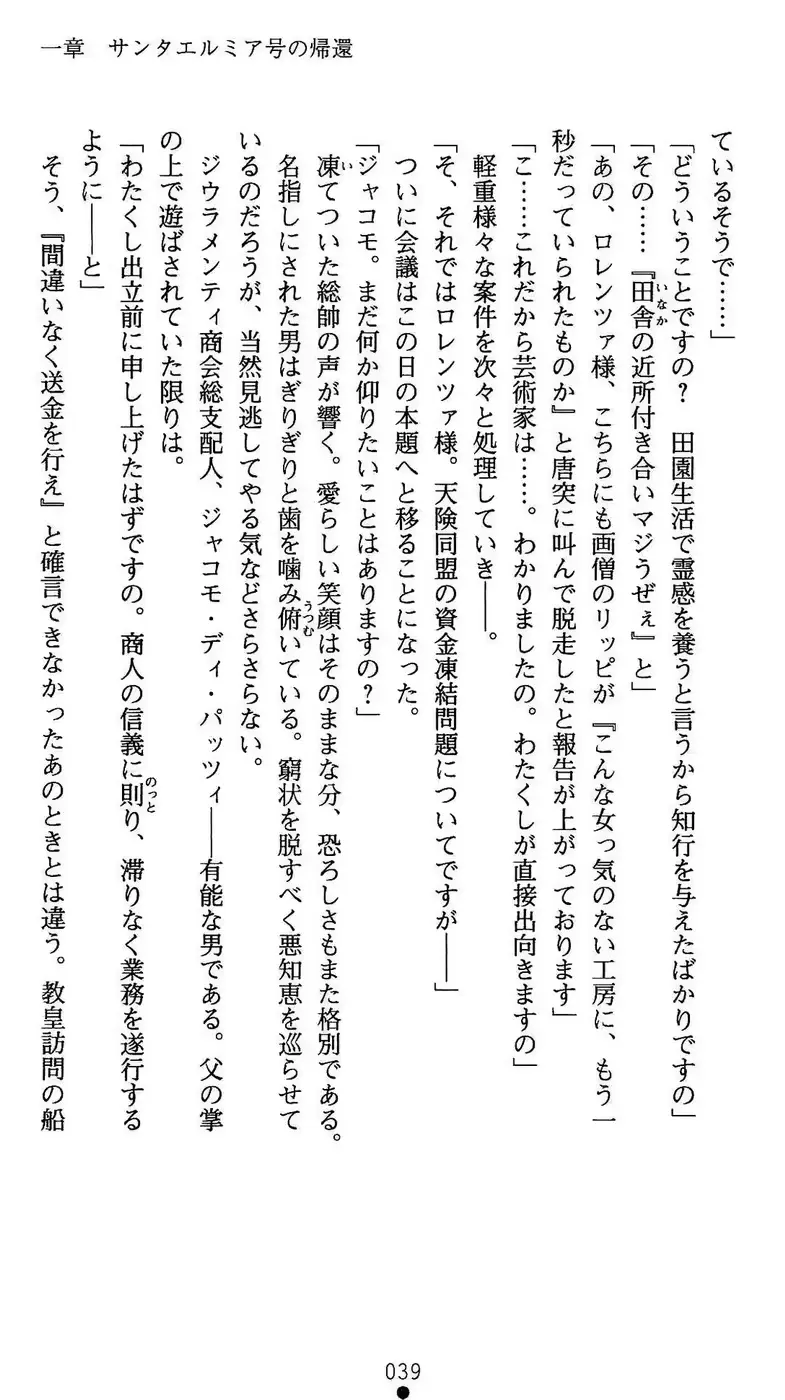 一章　サンタエルミア号の帰還
ているそうで……」
「どういうことですの？　田園生活で霊感を養うと言うから知行を与えたばかりですの」
「その……『田舎の近所付き合いマジうぜぇ』と」
「あの、ロレンツァ様、こちらにも画僧のリッピが『こんな女っ気のない工房に、もう一
秒だっていられたものか』と唐突に叫んで脱走したと報告が上がっております」
「こ……これだから芸術家は……。わかりましたの。わたくしが直接出向きますの」
軽重様々な案件を次々と処理していき――。
「そ、それではロレンツァ様。天険同盟の資金凍結問題についてですが――」
ついに会議はこの日の本題へと移ることになった。
「ジャコモ。まだ何か仰りたいことはありますの？」
凍てついた総帥の声が響く。愛らしい笑顔はそのままな分、恐ろしさもまた格別である。
名指しにされた男はぎりぎりと歯を噛み俯いている。窮状を脱すべく悪知恵を巡らせて
いるのだろうが、当然見逃してやる気などさらさらない。
ジウラメンティ商会総支配人、ジャコモ・ディ・パッツィ――有能な男である。父の掌
の上で遊ばされていた限りは。
「わたくし出立前に申し上げたはずですの。商人の信義に則り、滞りなく業務を遂行する
ように――と」
そう、『間違いなく送金を行え』と確言できなかったあのときとは違う。教皇訪問の船
039